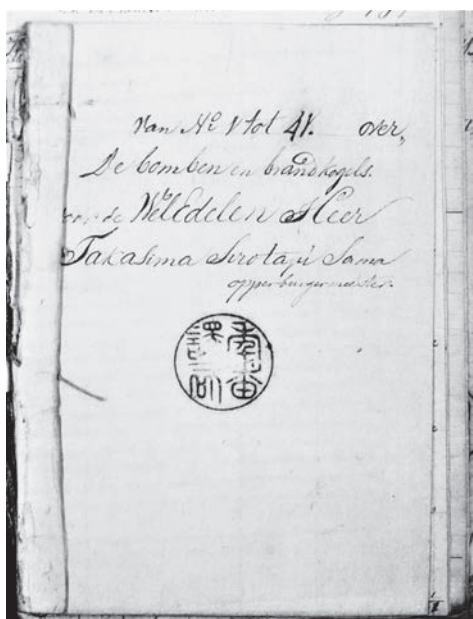 Van No 1 tot 41. over,
De bomben en brandkogels.
voor de WelEdelen Heer
Takasima Sirotaju Sama
opperburgermeester.